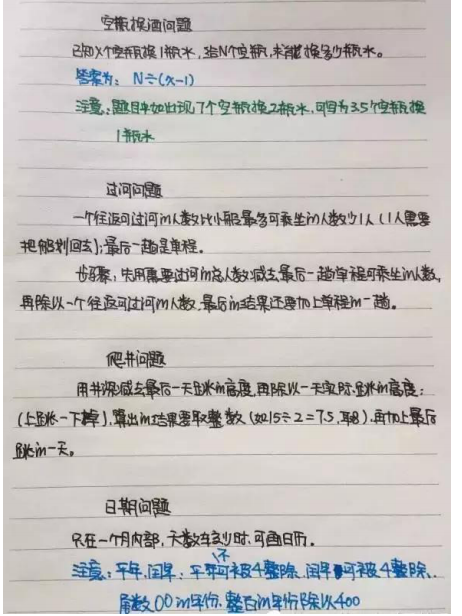 空瓶换酒问题
已知X个空瓶换1瓶水,给N个空瓶,求能换多少瓶水。
答案为: N÷(X-1)
注意:题目中如出现7个空瓶换2瓶水,可写为3.5个空瓶换
1瓶水
过河问题
一个往返可过河的人数比小船最多可乘坐的人数少1人(1人需要
把船划回去);最后一趟是单程。
步骤:先用需要过河的总人数减去最后一趟单程可乘坐的人数,
再除以一个往返可过河的人数,最后的结果还要加上单程的一趟。
爬井问题
用井深减去最后一天跳的高度,再除以一天实际跳的高度:
(上跳-下掉),算出的结果要取整数(如15÷2=7.5,取8),再加上最后
跳的一天。
日期问题
只在一个月内部,天数较少时,可画日历。
注意:平年、闰年:平年不可被4整除、闰年可被4整除、
尾数00的年份,整百的年份除以400